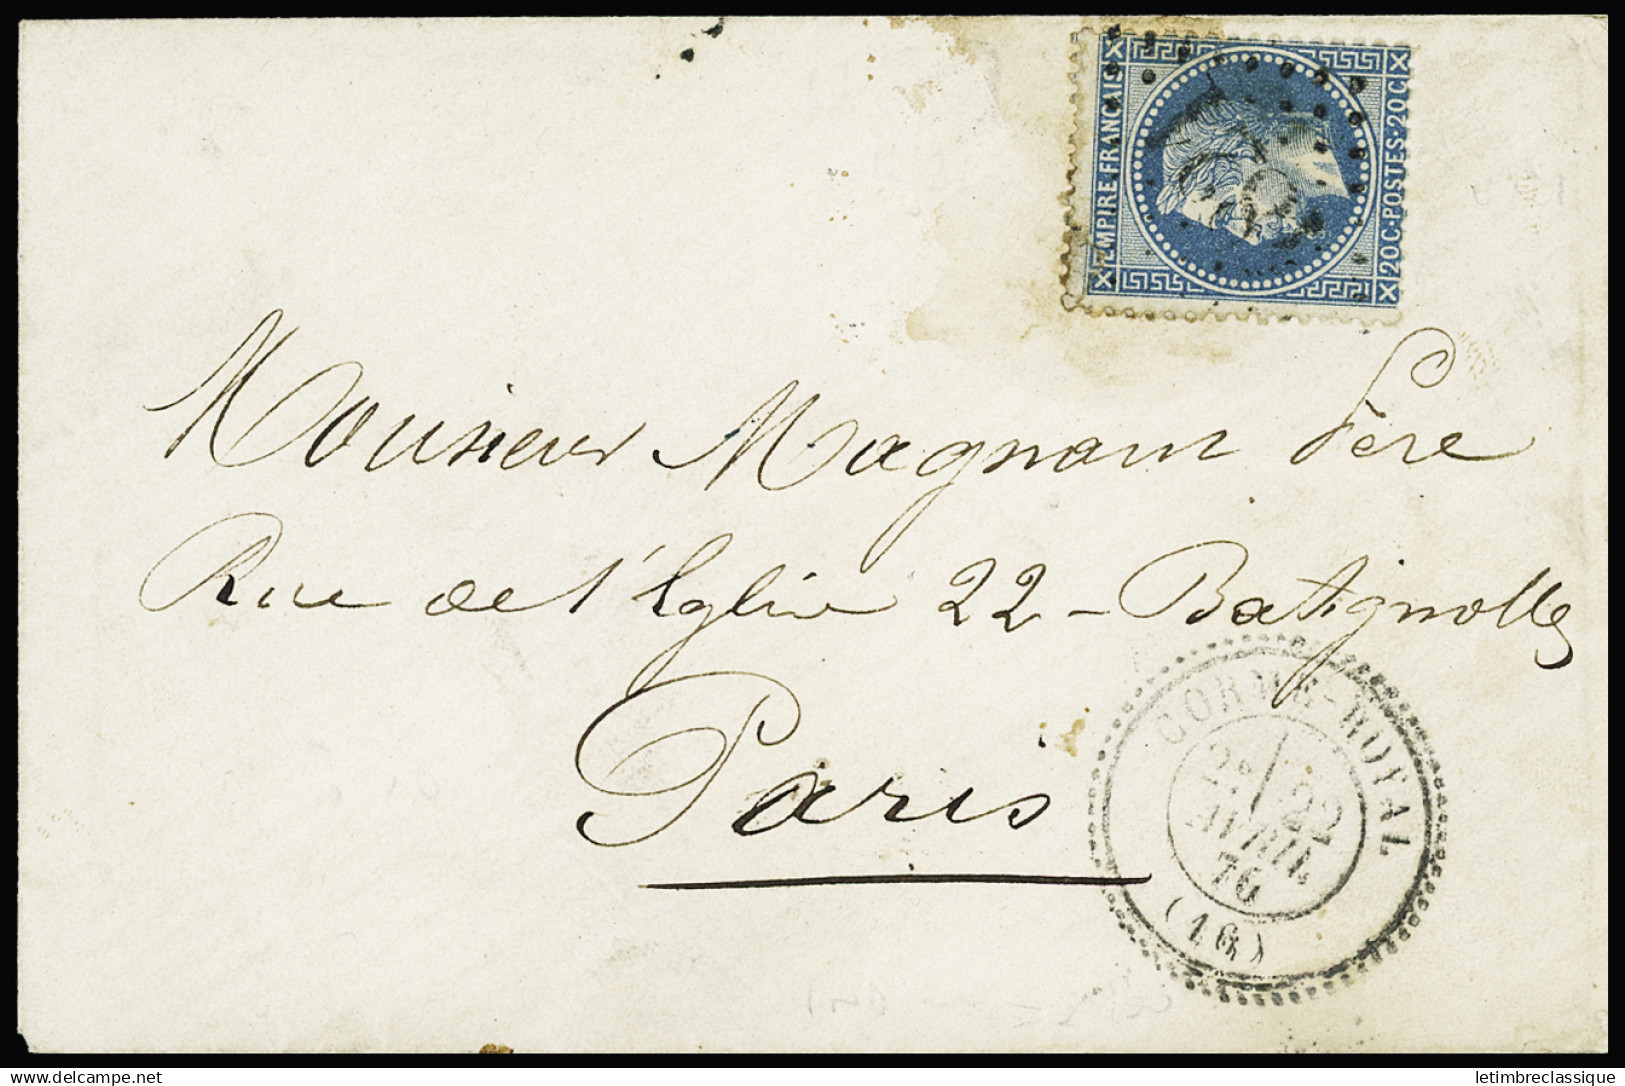 EMPIRE FRANCAIS
20C·POSTES·20C
Monsieur Magnam Père
Rue de l'Eglise 22 - Batignolles
Paris
CORME-ROYAL
2E 22
AVRIL
76
(16)
delcampe.net
letimbreclassique